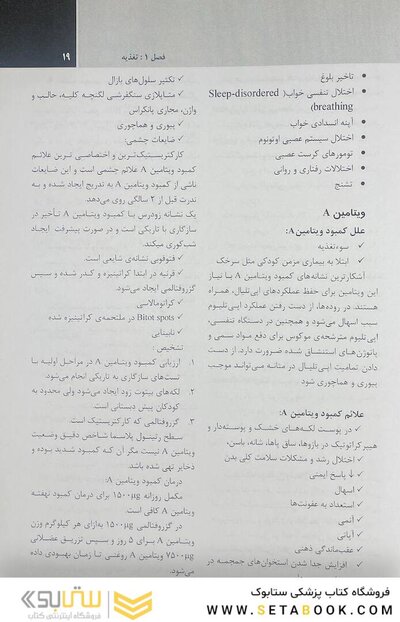 ۱۹
فصل ۱: تغذیه
تأخیر بلوغ
اختلال تنفسی خواب( Sleep-disordered
breathing)
آپنه انسدادی خواب
اختلال سیستم عصبی اتونوم
تومورهای کرست عصبی
اختلالات رفتاری و روانی
تشنج
ویتامین A
علل کمبود ویتامین A:
سوءتغذیه
ابتلا به بیماری مزمن کودکی مثل سرخک
آشکارترین نشانه‌های کمبود ویتامین A با نیاز
این ویتامین برای حفظ عملکردهای اپی‌تلیال، همراه
هستند. در روده‌ها، از دست رفتن عملکرد اپی‌تلیوم
سبب اسهال می‌شود و همچنین در دستگاه تنفسی،
اپی‌تلیوم مترشحه‌ی موکوس برای دفع مواد سمی و
پاتوژن‌های استنشاق شده ضرورت دارد. از دست
دادن تمامیت اپی‌تلیال در مثانه می‌تواند موجب
پیوری و هماچوری شود
علائم کمبود ویتامین A:
✓ در پوست لکه‌های خشک و پوسته‌دار و
هیپرکراتوتیک در بازوها، ساق پاها، شانه، باسن،
✓ اختلال رشد و مشکلات سلامت کلی بدن
✓ ↓ پاسخ ایمنی
✓ اسهال
✓ استعداد به عفونت‌ها
✓ آنمی
✓ آپاتی
✓ عقب‌ماندگی ذهنی
✓ افزایش جدا شدن استخوان‌های جمجمه در
✓ تکثیر سلول‌های بازال
✓ متاپلازی سنگفرشی لگنچه کلیه، حالب و
واژن، مجاری پانکراس
✓ پیوری و هماچوری
✓ ضایعات چشمی:
کارکتریستیک‌ترین و اختصاصی ترین علائم
کمبود ویتامین A علائم چشمی است و این ضایعات
ناشی از کمبود ویتامین A به تدریج ایجاد شده و به
ندرت قبل از ۲ سالگی روی می‌دهد.
یک نشانه زودرس با کمبود ویتامین A تأخیر در
سازگاری با تاریکی است و در صورت پیشرفت ایجاد
شب‌کوری میکند.
✓ فتوفوبی نشانه‌ی شایعی است.
✓ قرنیه در ابتدا کراتینیزه و کدر شده و سپس
گزروفتالمی ایجاد می‌شود.
✓ کراتومالاسی
✓ Bitot spots در ملتحمه‌ی کراتینیزه شده
✓ نابینایی
تشخیص
۱. ارزیابی کمبود ویتامین A در مراحل اولیه با
تست‌های سازگاری به تاریکی انجام می‌شود.
۲. لکه‌های بیتوت زود ایجاد می‌شود ولی محدود به
کودکان پیش دبستانی است.
۳. گزروفتالمی که کارکتریستیک است
سطح رتینول پلاسما شاخص دقیق وضعیت
ویتامین A نیست مگر آن که کمبود شدید بوده و
ذخایر تهی شده باشد.
درمان کمبود ویتامین A:
مکمل روزانه ۱۵۰۰µg برای درمان کمبود نهفته
ویتامین A کافی است.
در گزروفتالمی ۱۵۰۰µg به‌ازای هر کیلوگرم وزن
ویتامین A برای ۵ روز و سپس تزریق عضلانی
۷۵۰۰µg ویتامین A روغنی تا زمان بهبودی داده
می‌شود.
ستابوک
فروشگاه اینترنتی کتاب
فروشگاه کتاب پزشکی ستابوک
WWW.SETABOOK.COM